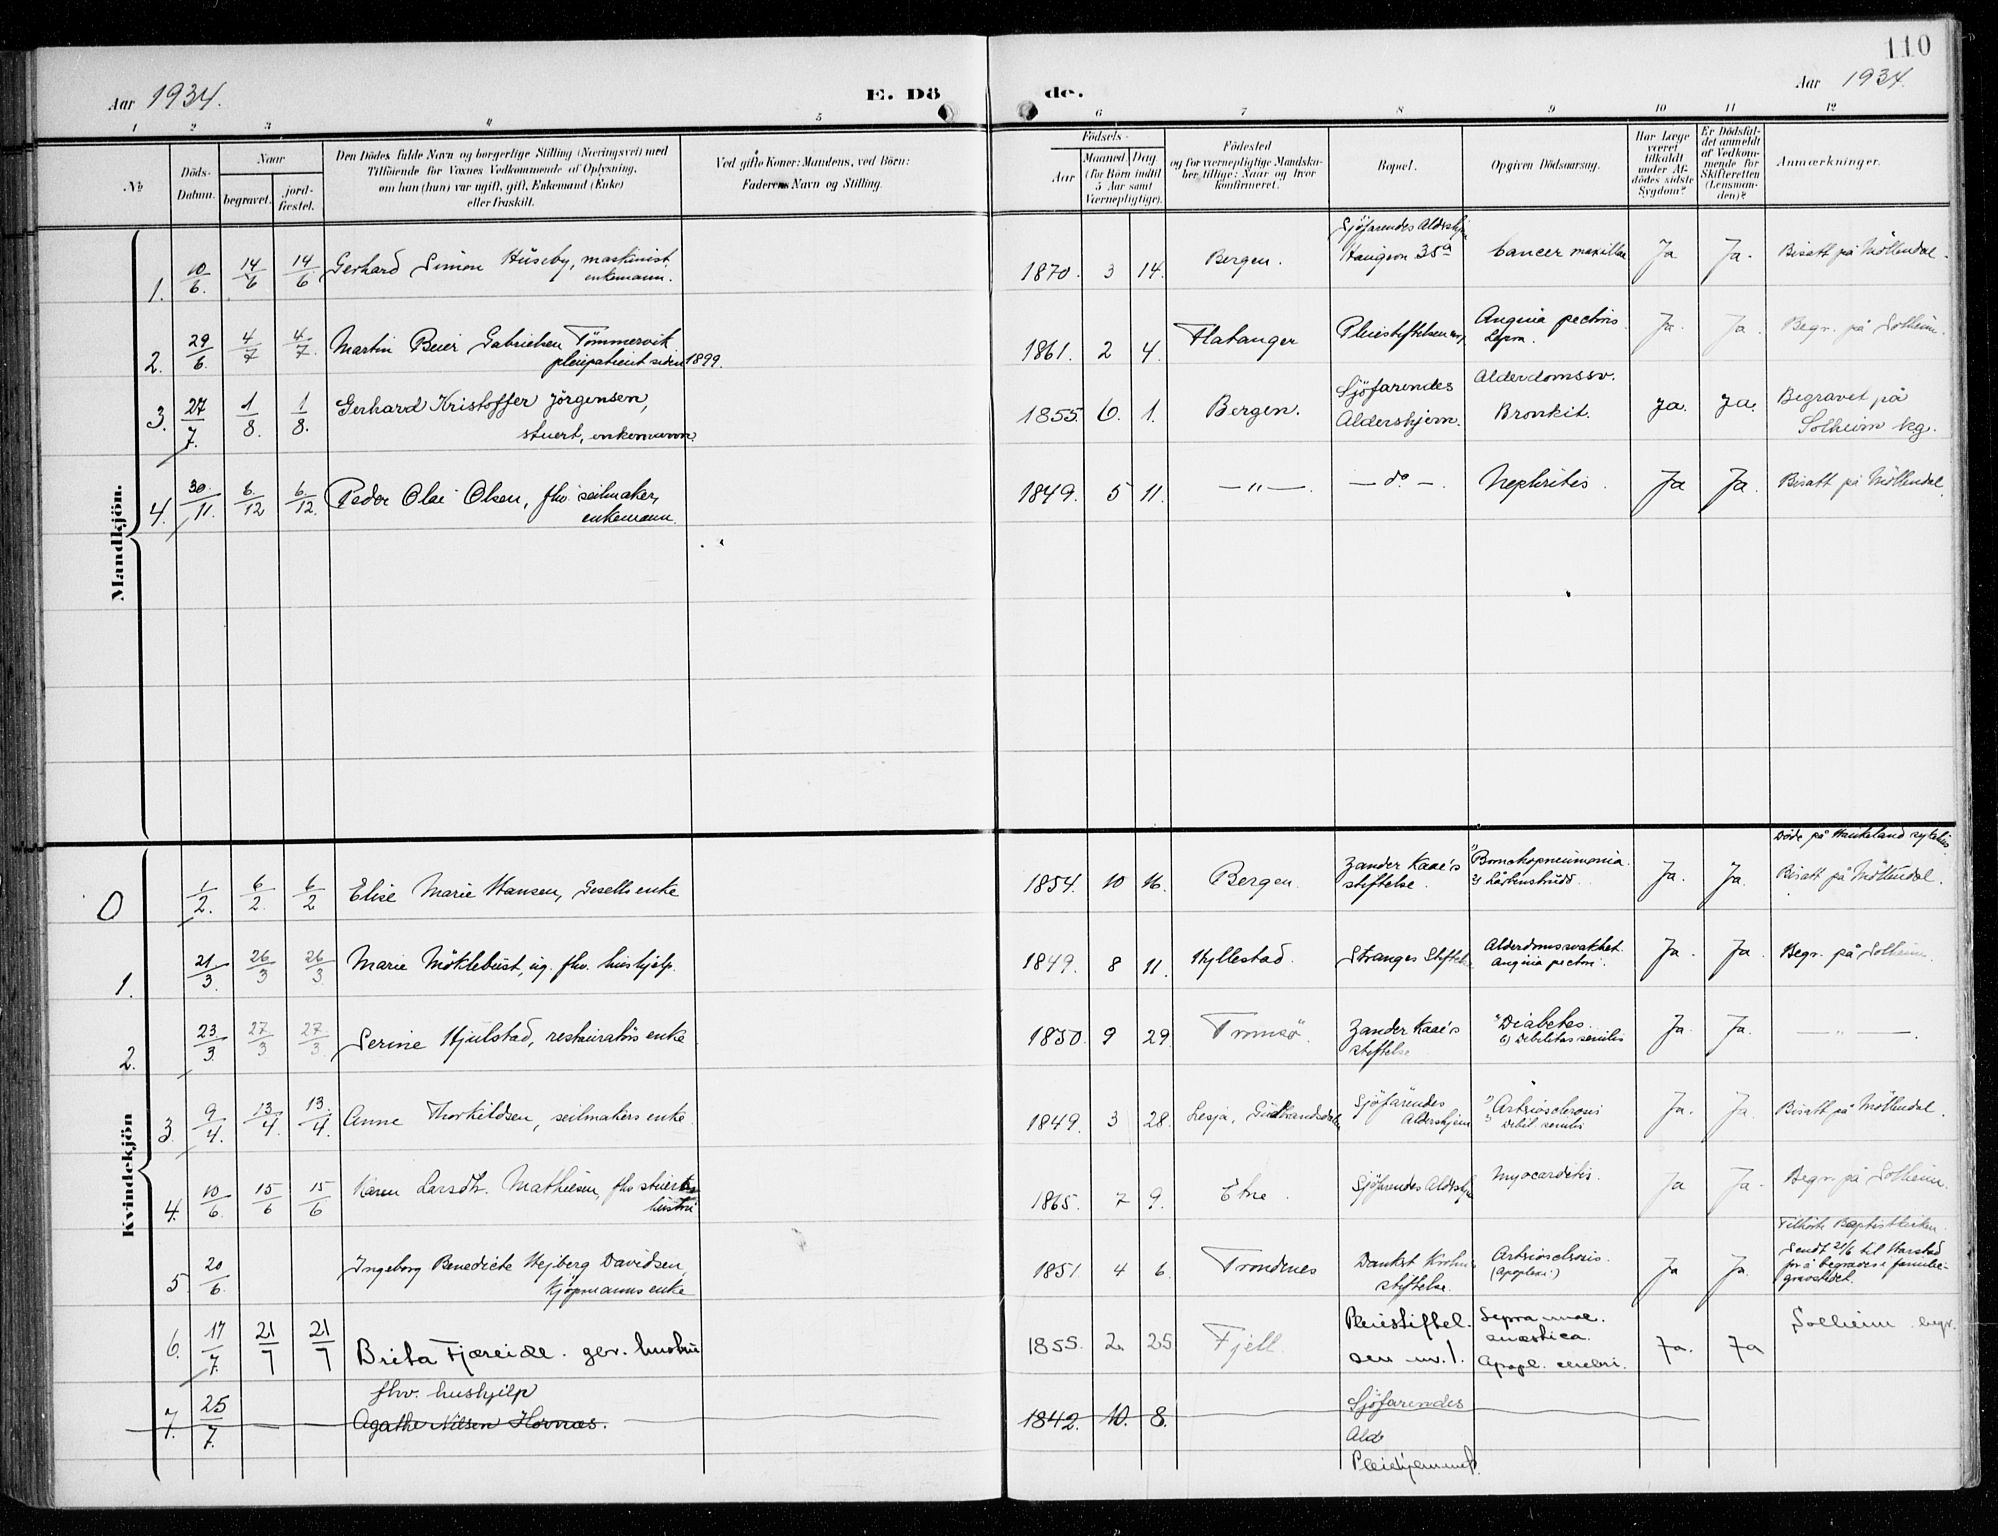 110
Aar 1934.
E. Dö
de.
Aar 1934.
1 2 3 4 5 6 7 8 9 10 11 12
No
Döds-
Datum.
Naar
begravet.
jord-
fæstet.
Den Dödes fulde Navn og borgerlige Stilling (Næringsvei) med
Tilföiende for Voxnes Vedkommende af Oplysning,
om han (hun) var ugift, gift, Enkemand (Enke)
eller fraskilt.
Ved gifte Koner: Mandens, ved Börn:
Faderens Navn og Stilling.
Födsels-
Aar
Maaned
Dag
(for Börn indtil
5 Aar samt
Værnepligtige).
Födested
og for værnepligtige Mandska-
ber tillige: Naar og hvor
konfirmeret.
Bopæl.
Opgiven Dödsaarsag.
Har Læge
været
tilkaldt
under Af-
dödes sidste
Sygdom?
Er Dödsfal-
det anmeldt
af Vedkom-
mende for
Skifteretten
(Lensman-
den)?
Anmærkninger.
Mandkjön.
1. 10/6. 14/6 14/6 Gerhard Simon Huseby, maskinist,
enkemann.
1870. 3 14. Bergen. Sjöfarendes Aldershjem
Haugevn 35a Cancer maxillae Ja Ja. Bisatt på Möllendal.
2. 29/6. 4/7 4/7. Martin Beier Gabrielsen Tömmervik
pleiepatient siden 1899.
1861. 2 4. Flatanger Pleiestiftelsen Angina pectoris.
Lepra. Ja. Ja. Begr. på Solheim.
3. 27/7. 1/8. 1/8. Gerhard Kristoffer Jörgensen,
stuert, enkemann
1855. 6. 1. Bergen. Sjöfarendes
Aldershjem. Alderdomssv.
Bronkit. Ja. Ja. Begravet på
Solheim kg.
4. 30/11. 6/12 6/12. Peder Olai Olsen, fhv. seilmaker,
enkemann.
1849. 5 11. — " —. — do —. Nephritis. Ja Ja. Bisatt på Möllendal.
Kvindekjön
0 1/2. 6/2. 6/2 Elise Marie Hansen, Gesells enke
1854. 10 16. Bergen. Zander Kaae's
stiftelse. Bronchopneumonia.
2) Lårbensbrudd. Ja. Ja. Döde på Haukeland sykehus
Bisatt på Möllendal.
1. 21/3. 26/3 26/3. Marie Möklebust, ug. fhv. hushjelp.
1849. 8 11. Hyllestad. Stranges Stiftelse Alderdomssvakhet.
Angina pectoris. Ja. Ja. Begr. på Solheim.
2. 23/3. 27/3 27/3. Serine Hjulstad, restauratörs enke
1850. 9 29. Tromsö. Zander Kaae's
stiftelse 1) Diabetes.
2) Debilitas senilis Ja. Ja. — " —.
3. 9/4. 13/4 13/4. Anne Thorkildsen, seilmakers enke.
1849. 3 28. Lesja, Gudbrandsdalen Sjöfarendes
Aldershjem 1) Artriosclerosis
2) Debil senilis Ja. Ja. Bisatt på Möllendal.
4. 10/6. 15/6 15/6 Karen Larsdtr. Mathiesen, fhv. stuerts
hustru
1865. 7 9. Etne. Sjöfarendes Aldershjem Myocarditis. Ja Ja. Begr. på Solheim.
5. 20/6. Ingeborg Benedicte Hejberg Davidsen,
Kjöpmanns enke
1851. 4 6. Trondenes Dankert Krohns
stiftelse. Artriosclerosis.
(Apoplexi) Ja Ja. Tilhörte Baptistkirken.
Sendt 21/6 til Harstad
for å begraves i familie-
gravstedet.
6. 17/7. 21/7 21/7 Brita Fjæreide. gev. hustru
1855. 2. 25. Fjell. Pleiestiftel.
sen nr. 1. Lepra mac.
anæstica.
Apopl. cerebri. Ja. Ja Solheim begr.
7. 25/7. fhv. hushjelp
Agathe Nilsen Hovnæs.
1842. 10. 8. Sjöfarendes
Alde
Pleiehjemmet.